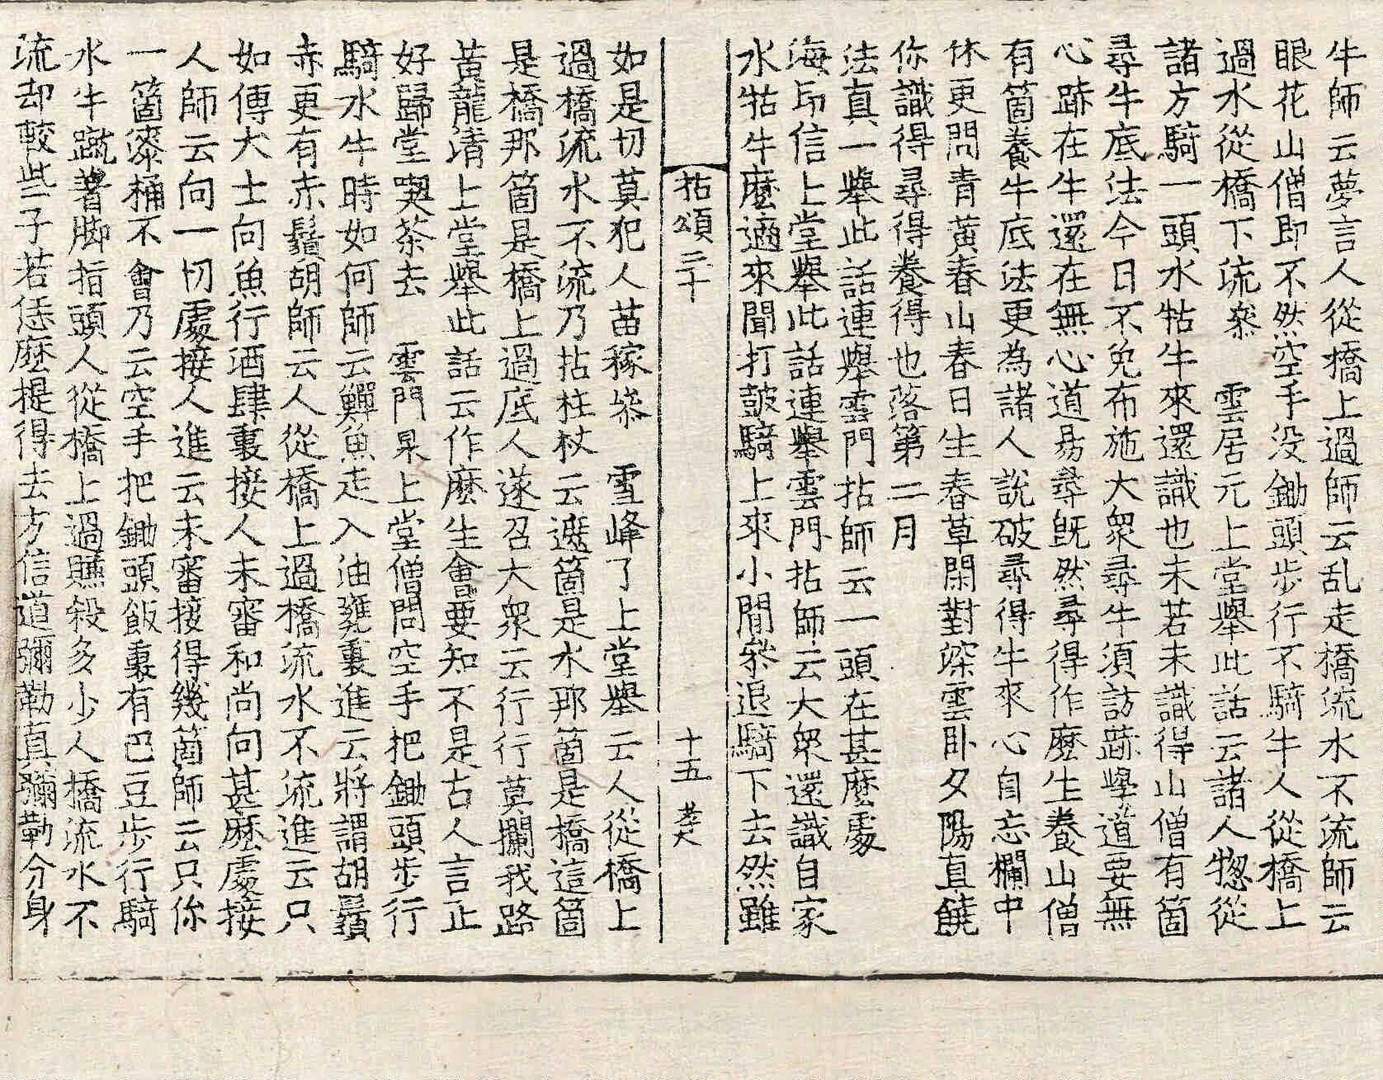 牛師云夢言人從橋上過師云乱走橋流水不流師云
眼花山僧即不然空手没鋤頭步行不騎牛人從橋上
過水從橋下流叅　雲居元上堂舉此話云諸人惣從
諸方騎一頭水牯牛來還識也未若未識得山僧有箇
尋牛底法今日不免布施大衆尋牛須訪跡學道要無
心跡在牛還在無心道易尋旣然尋得作麽生養山僧
有箇養牛底法更為諸人說破尋得牛來心自忘欄中
休更問青黃春山春日生春草閑對深雲卧夕陽直饒
你識得尋得養得也落第二月
法真一舉此話連舉雲門拈師云一頭在甚麽處
海印信上堂舉此話連舉雲門拈師云大衆還識自家
水牯牛麽適來聞打皷騎上來小閒叅退騎下去然雖
拈頌二十　十五
如是切莫犯人苗稼叅　雪峰了上堂舉云人從橋上
過橋流水不流乃拈柱杖云遮箇是水那箇是橋這箇
是橋那箇是橋上過底人遂召大衆云行行莫攔我路
黃龍清上堂舉此話云作麽生會要知不是古人言正
好歸堂喫茶去　雲門杲上堂僧問空手把鋤頭步行
騎水牛時如何師云鱓魚走入油甕裏進云將謂胡鬚
赤更有赤鬚胡師云人從橋上過橋流水不流進云只
如傅大士向魚行酒肆裏接人未審和尚向甚麽處接
人師云向一切處接人進云未審接得幾箇師云只你
一箇漆桶不會乃云空手把鋤頭飯裏有巴豆步行騎
水牛蹴著脚指頭人從橋上過賺殺多少人橋流水不
流却較些子若恁麽提得去方信道彌勒真彌勒分身